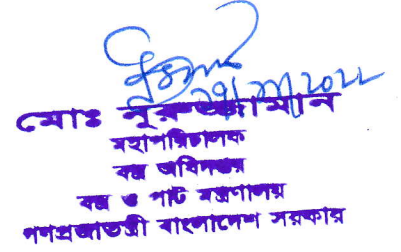 ২৭/১১/২০২২
মোঃ নূরুজ্জামান
মহাপরিচালক
বস্ত্র অধিদপ্তর
বস্ত্র ও পাট মন্ত্রণালয়
গণপ্রজাতন্ত্রী বাংলাদেশ সরকার